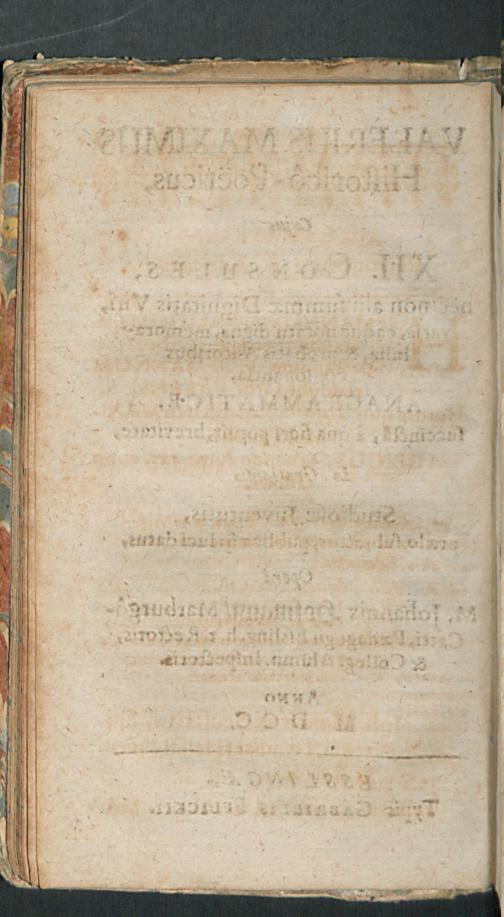 VALERIUS MAXIMUS
Historicô-Poëticus,
Cujus
XII. CONSULES,
nec non alii summæ Dignitatis Viri,
varia, eaque notatu digna, memora-
bilia, & probatis Autoribus
ANAGRAMMATICE,
succinctâ, à qua fieri potuit, brevitate,
In Gratiam
Studiosæ Juventutis,
prælo subjectus, publicæque luci datus,
Operâ
M. Johannis Hofmanni, Marburgô-
Catti, Pædagogii Essling. h. t. Rectoris,
& Colleg. Alumn. Inspectoris.
ANNO
M D C C.
ESSLINGÆ,
Typis GABRIELIS